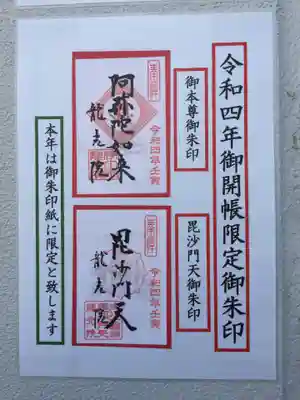 令和四年御開帳限定御朱印
御本尊御朱印
阿弥陀如来
龍光院
令和四年壬寅
毘沙門天御朱印
毘沙門天
龍光院
令和四年壬寅
本年は御朱印紙に限定と致します